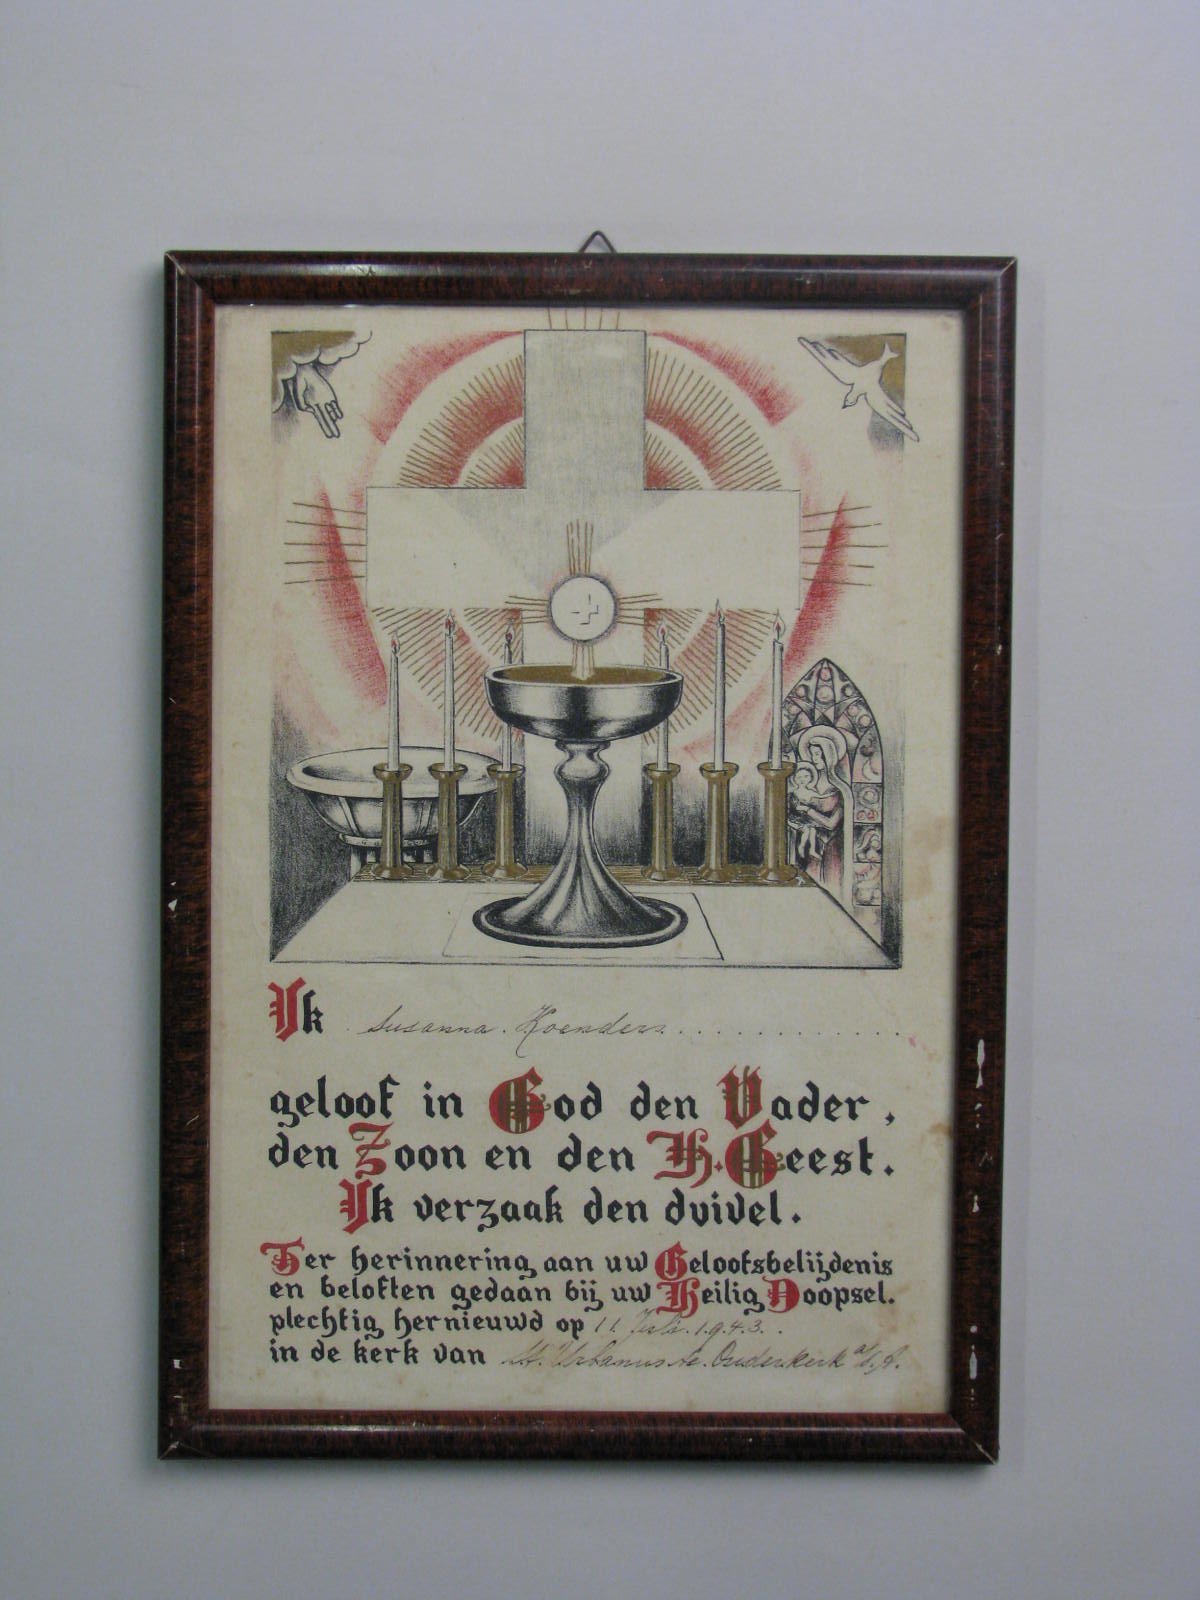 Ik Susanna Koenders
geloof in God den Vader,
den Zoon en den H. Geest.
Ik verzaak den duivel.
Ter herinnering aan uw Geloofsbelijdenis
en beloften gedaan bij uw Heilig Doopsel.
plechtig hernieuwd op 11 Juli 1943.
in de kerk van St. Urbanus te Ouderkerk a/d. A.